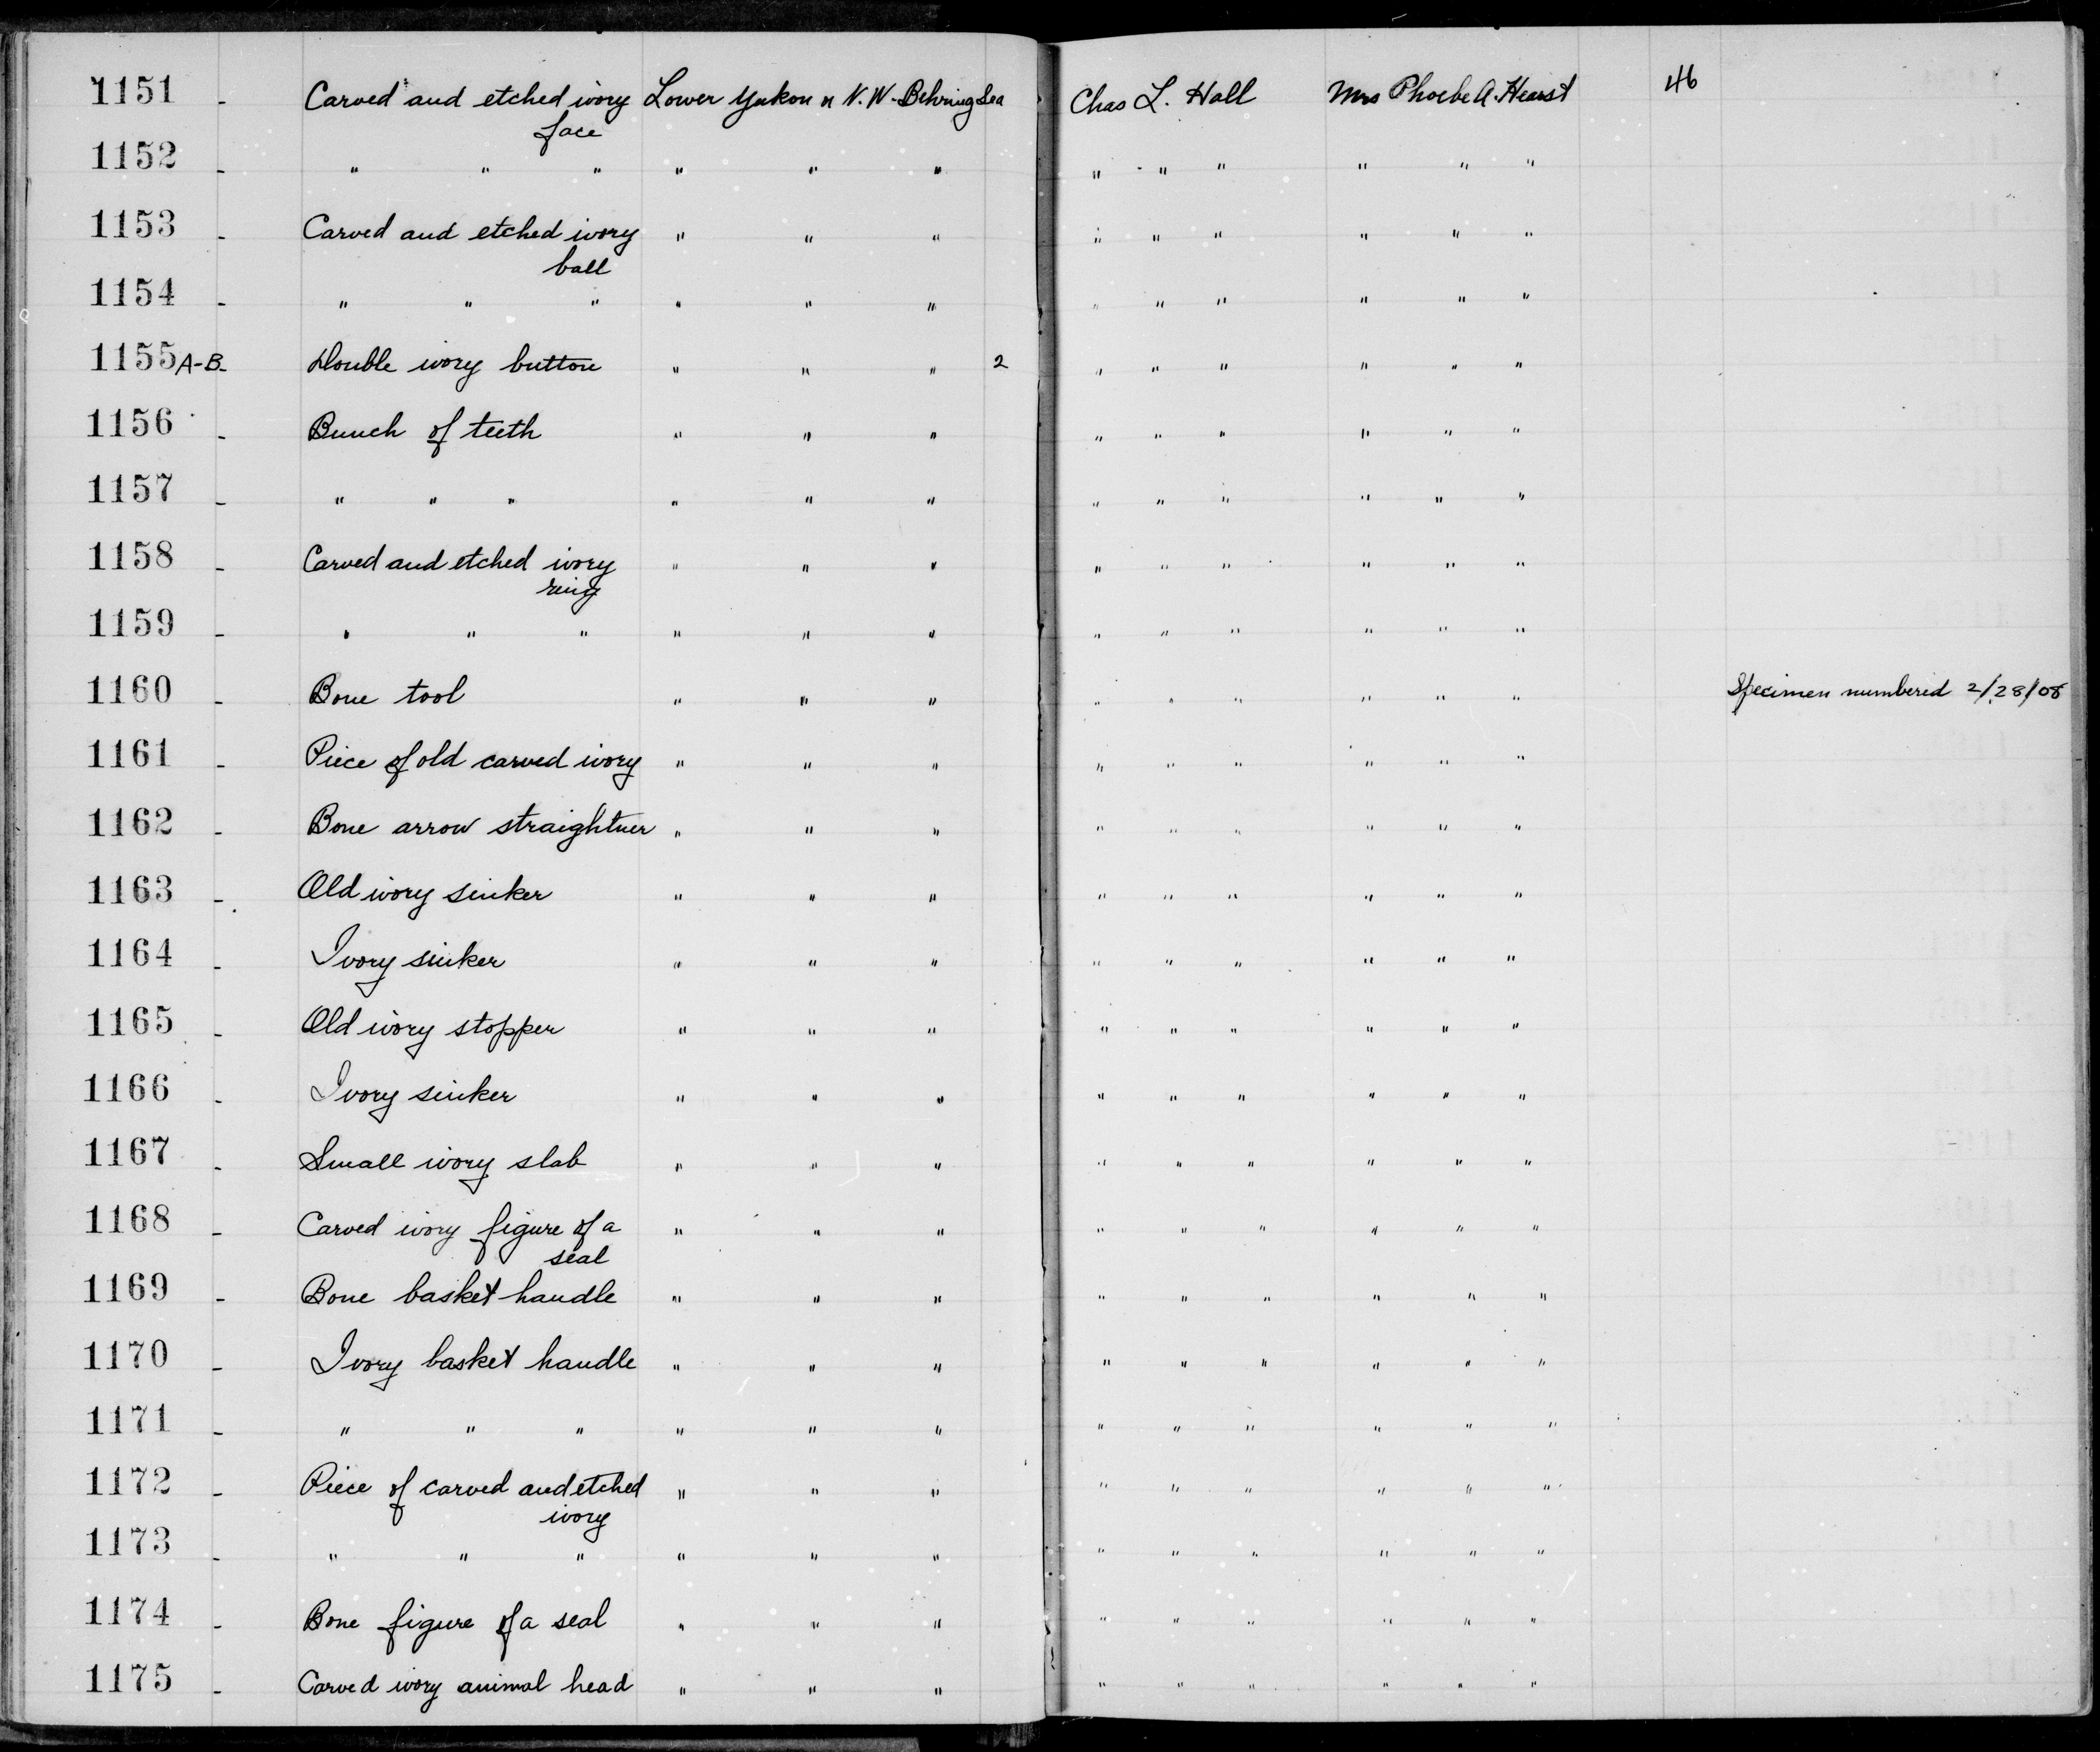 1151 - Carved and etched ivory face Lower Yukon n N.W. Behring Sea Chas L. Hall Mrs Phoebe A. Hearst 46
1152 - " " " " " " " " " " " "
1153 - Carved and etched ivory ball " " " " " " " " "
1154 - " " " " " " " " " " " "
1155 A-B - Double ivory button " " " 2 " " " " " "
1156 - Bunch of teeth " " " " " " " " "
1157 - " " " " " " " " " " " "
1158 - Carved and etched ivory ring " " " " " " " " "
1159 - " " " " " " " " " " " "
1160 - Bone tool " " " " " " " " " Specimen numbered 2/28/08
1161 - Piece of old carved ivory " " " " " " " " "
1162 - Bone arrow straightner " " " " " " " " "
1163 - Old ivory sinker " " " " " " " " "
1164 - Ivory sinker " " " " " " " " "
1165 - Old ivory stopper " " " " " " " " "
1166 - Ivory sinker " " " " " " " " "
1167 - Small ivory slab " " " " " " " " "
1168 - Carved ivory figure of a seal " " " " " " " " "
1169 - Bone basket handle " " " " " " " " "
1170 - Ivory basket handle " " " " " " " " "
1171 - " " " " " " " " " " " "
1172 - Piece of carved and etched ivory " " " " " " " " "
1173 - " " " " " " " " " " " "
1174 - Bone figure of a seal " " " " " " " " "
1175 - Carved ivory animal head " " " " " " " " "